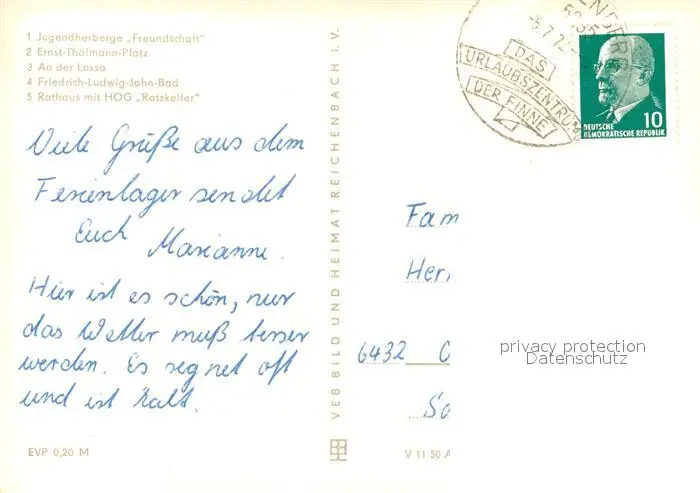 1 Jugendherberge „Freundschaft"
2 Ernst-Thälmann-Platz
3 An der Lossa
4 Friedrich-Ludwig-Jahn-Bad
5 Rathaus mit HOG „Ratskeller"
Viele Grüße aus dem
Ferienlager sendet
Euch
Marianne.
Hier ist es schön, nur
das Wetter muß besser
werden. Es regnet oft
und ist kalt.
EVP 0,20 M
VEB BILD UND HEIMAT REICHENBACH I. V.
DAS
URLAUBSZENTRUM
DER FINNE
DEUTSCHE
DEMOKRATISCHE REPUBLIK
10
Fam
Her
6432
privacy protection
Datenschutz
V 11 50 A